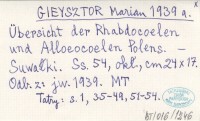 GIEYSZTOR Marian 1939 a.
Übersicht der Rhabdocoelen
und Alloeocoelen Polens. –
Suwałki. Ss. 54, okł., cm 24 x 17.
Odb. z: jw. 1939. MT
Tatry: s. 1, 35-49, 51-54.